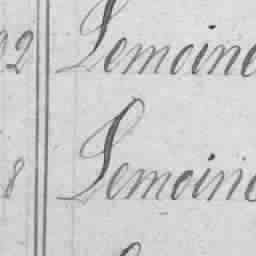 92 Lemoine
8 Lemoine